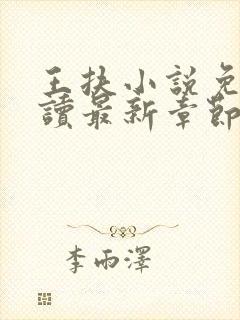 王扶小說免
讀最新章節
李雨澤